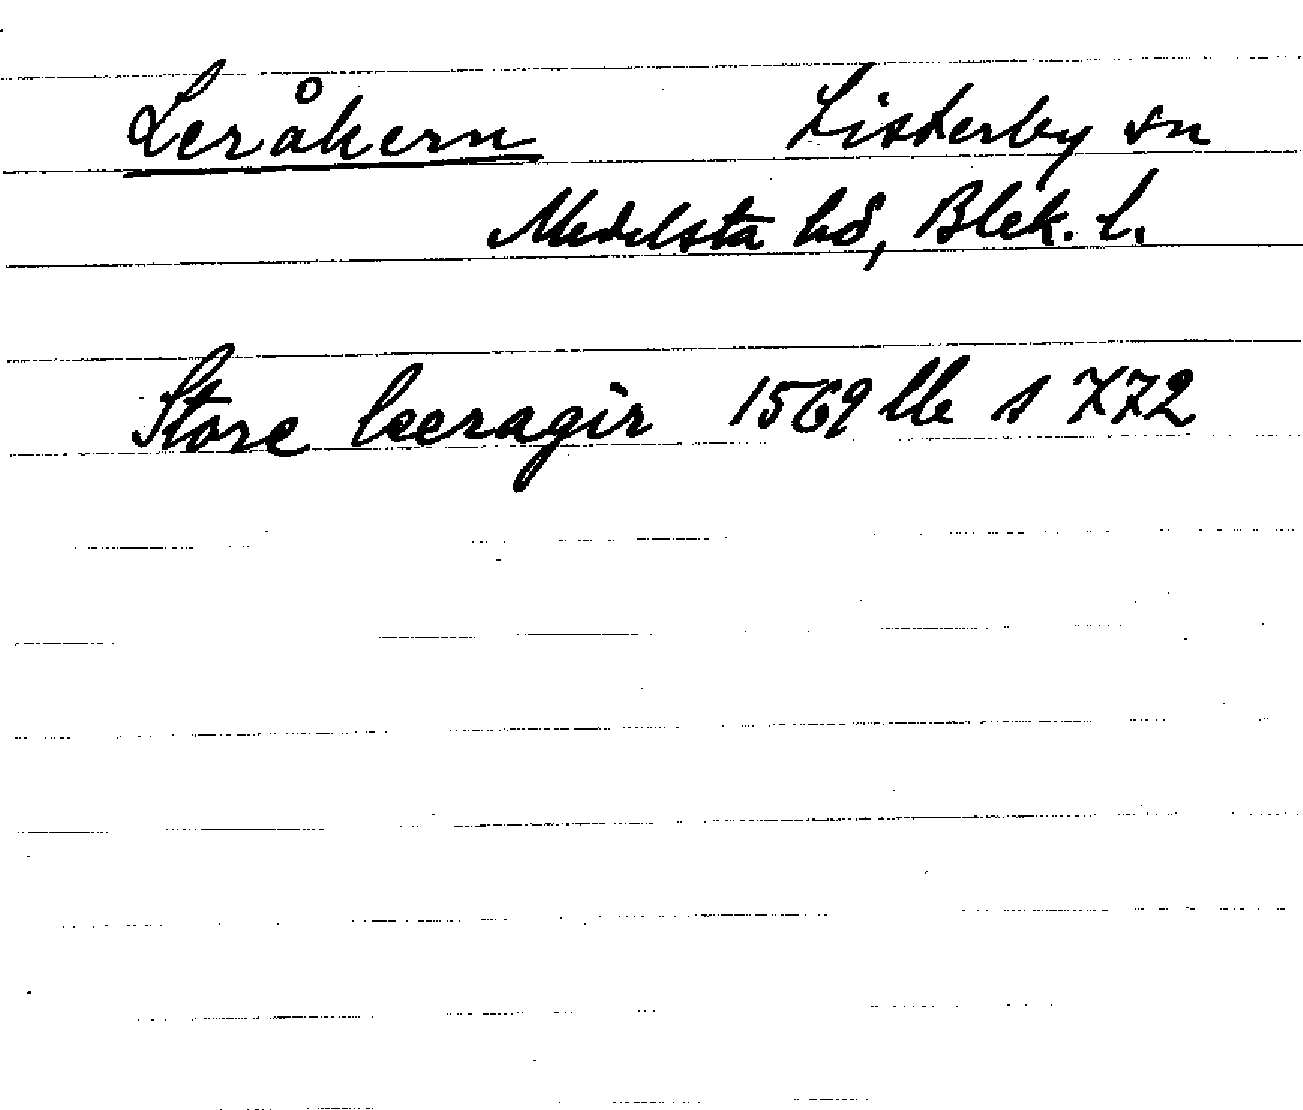 Leråkern Listerby sn
Medelsta hd, Blek. l.
Store leeragir 1569 lle s 772